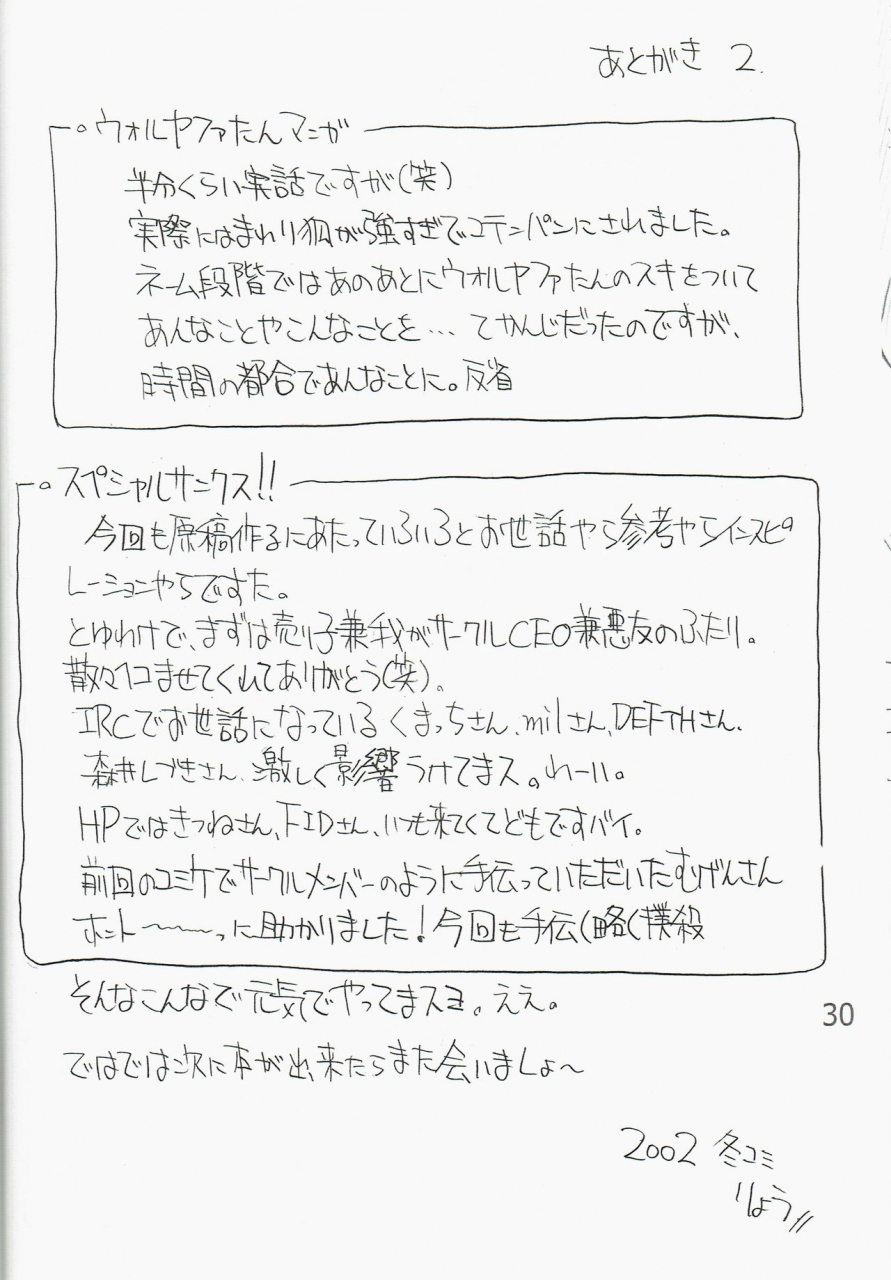 あとがき 2.
ウォルヤファたんマンガ
半分くらい実話ですが(笑)
実際にはまわり狐が強すぎでコテンパンにされました。
ネーム段階ではあのあとにウォルヤファたんのスキをついて
あんなことやこんなことを…てかんじだったのですが、
時間の都合であんなことに。反省
スペシャルサンクス!!
今回も原稿作るにあたっていろいろとお世話やら参考やらインスピ
レーションやらですた。
とゆわけで、まずは売り子兼我がサークルCEO兼悪友のふたり。
散々コませてくれてありがとう(笑)。
IRCでお世話になっているくまっちさん、milさん、DEFTHさん、
森井しづきさん、激しく影響うけてまス。わーい。
HPではきつねさん、FIDさん、いつも来てくてどもですバイ。
前回のコミケでサークルメンバーのように手伝っていただいたむげんさん
ホント〜〜〜っに助かりました!今回も手伝(略(撲殺
そんなこんなで元気でやってまスヨ。ええ。
ではでは次に本が出来たらまた会いましょ〜
30
2002 冬コミ
りょう//